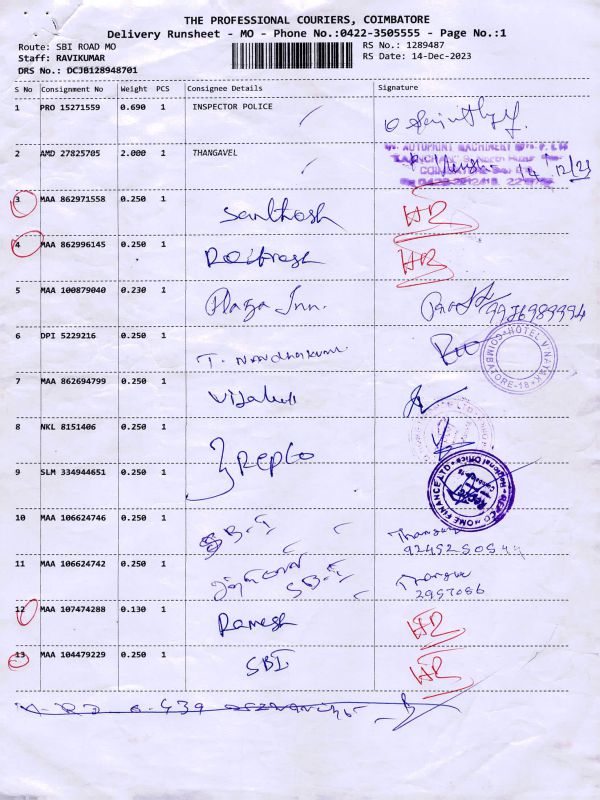 THE PROFESSIONAL COURIERS, COIMBATORE
Delivery Runsheet - MO - Phone No.:0422-3505555 - Page No.:1
Route: SBI ROAD MO RS No.: 1289487
Staff: RAVIKUMAR RS Date: 14-Dec-2023
DRS No.: DCJB128948701
S No Consignment No Weight PCS Consignee Details Signature
1 PRO 15271559 0.690 1 INSPECTOR POLICE
2 AMD 27825705 2.000 1 THANGAVEL
14/12/23
3 MAA 862971558 0.250 1 Santhosh HR
4 MAA 862996145 0.250 1 HR
5 MAA 100879040 0.230 1 Plaza Inn.
6 DPI 5229216 0.250 1 T. Nandhakumar
HOTEL VINAYAK COIMBATORE-18
7 MAA 862694799 0.250 1
8 NKL 8151406 0.250 1 REPCO
9 SLM 334944651 0.250 1
REPCO HOME FINANCE LTD Regional Office
10 MAA 106624746 0.250 1 SBI
11 MAA 106624742 0.250 1 SBI
2957086
12 MAA 107474288 0.130 1 Ramesh HR
13 MAA 104479229 0.250 1 SBI HR